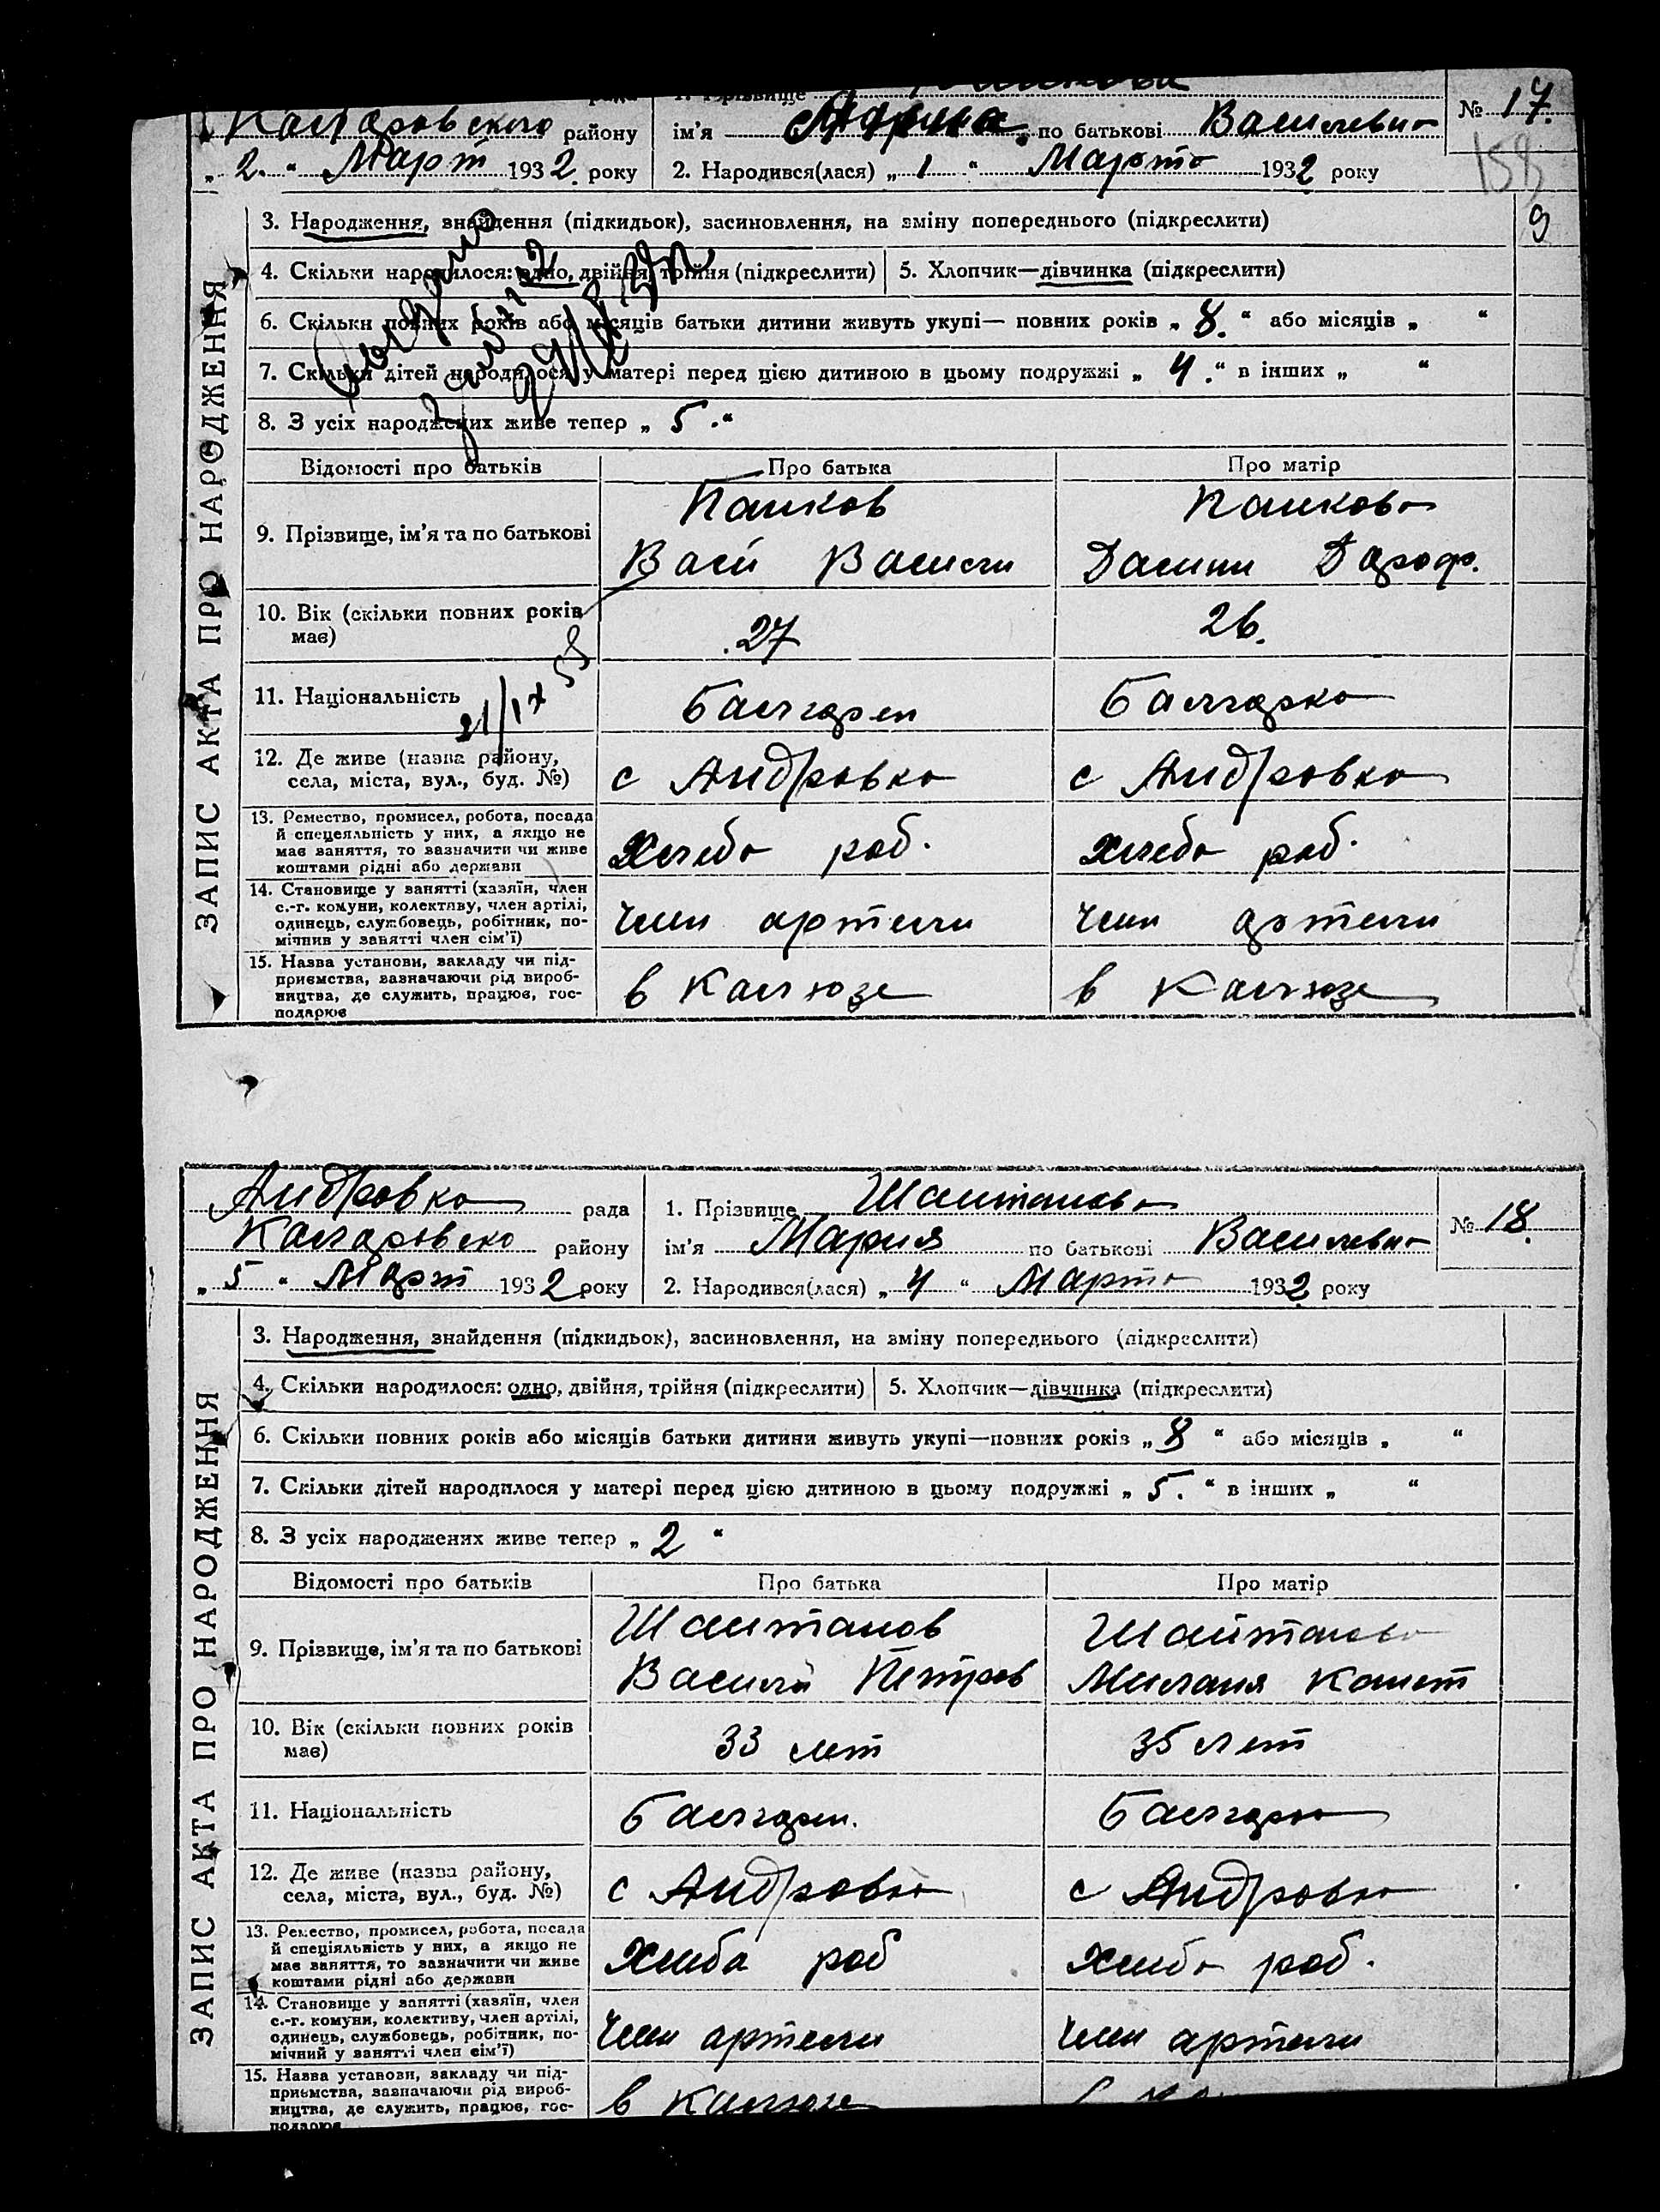 1. Прізвище
№ 17.
Колларовского району
ім'я по батькові Василевна
158
„ 2. “ Март 1932. року
2. Народився(лася) „ 1 “ Марта 1932 року
ЗАПИС АКТА ПРО НАРОДЖЕННЯ
3. Народження, знайдення (підкидьок), засиновлення, на зміну попереднього (підкреслити)
9
4. Скільки народилося: одно, двійня, трійня (підкреслити)
5. Хлопчик—дівчинка (підкреслити)
6. Скільки повних років або місяців батьки дитини живуть укупі— повних років „ 8. “ або місяців „ “
7. Скільки дітей народилося у матері перед цією дитиною в цьому подружжі „ 4. “ в інших „ “
8. З усіх народжених живе тепер „ 5. “
Відомості про батьків
Про батька
Про матір
9. Прізвище, ім'я та по батькові
Панков
Васи Васили
Панкова
Дороф.
10. Вік (скільки повних років
має)
27
26.
11. Національність
21/IX 58
Балгарен
Балгарка
12. Де живе (назва району,
села, міста, вул., буд. №)
с Андровка
с Андровка
13. Ремество, промисел, робота, посада
й спецеяльність у них, а якщо не
має заняття, то зазначити чи живе
коштами рідні або держави
Хлеба роб.
Хлеба роб.
14. Становище у занятті (хазяїн, член
с.-г. комуни, колективу, член артілі,
одинець, службовець, робітник, по-
мічнив у занятті член сім'ї)
член артели
член артели
15. Назва установи, закладу чи під-
приємства, зазначаючи рід вироб-
ництва, де служить, працює, гос-
подарює
в Калхозе
в Калхозе
Андровка рада
1. Прізвище Шайтанова
№ 18.
Коларовско району
ім'я Мария по батькові Василевна
„ 5 “ Март 1932 року
2. Народився(лася) „ 4 “ Марта 1932 року
ЗАПИС АКТА ПРО НАРОДЖЕННЯ
3. Народження, знайдення (підкидьок), засиновлення, на зміну попереднього (підкреслити)
4. Скільки народилося: одно, двійня, трійня (підкреслити)
5. Хлопчик—дівчинка (підкреслити)
6. Скільки повних років або місяців батьки дитини живуть укупі—повних років „ 8 “ або місяців „ “
7. Скільки дітей народилося у матері перед цією дитиною в цьому подружжі „ 5. “ в інших „ “
8. З усіх народжених живе тепер „ 2 “
Відомості про батьків
Про батька
Про матір
9. Прізвище, ім'я та по батькові
Шайтанов
Василий Петров
Шайтанова
Милания
10. Вік (скільки повних років
має)
33 лет
35 лет
11. Національність
Балгарен.
Балгарка
12. Де живе (назва району,
села, міста, вул., буд. №)
с Андровка
с Андровка
13. Ремество, промисел, робота, посада
й спеціяльність у них, а якщо не
має заняття, то зазначити чи живе
коштами рідні або держави
Хлеба роб
Хлеба роб.
14. Становище у занятті (хазяїн, член
с.-г. комуни, колективу, член артілі,
одинець, службовець, робітник, по-
мічний у занятті член сім'ї)
член артели
член артели
15. Назва установи, закладу чи під-
приємства, зазначаючи рід вироб-
ництва, де служить, працює, гос-
подарює
в Калхозе